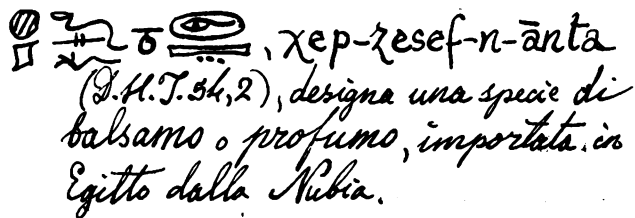 , χep-zesef-n-ānta
(D.H.I.54,2), designa una specie di
balsamo o profumo, importata in
Egitto dalla Nubia.